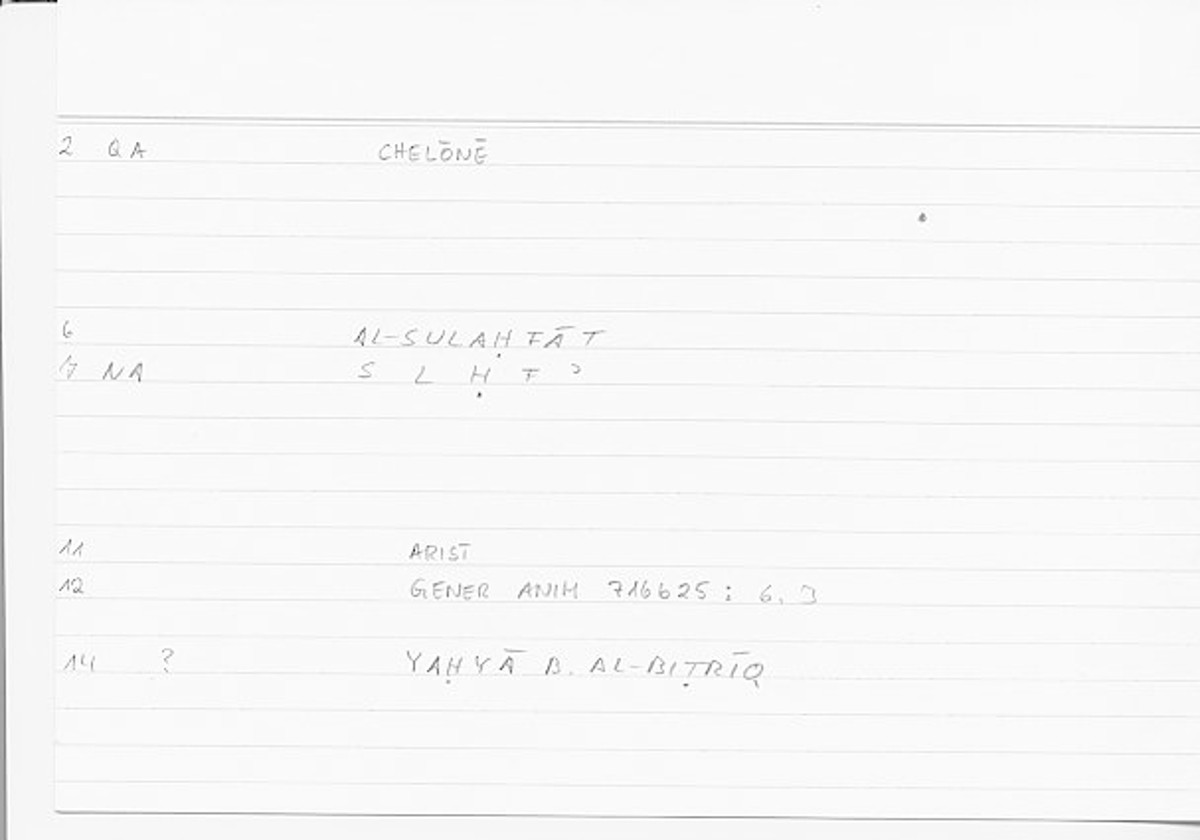 2 QA CHELŌNĒ
6 AL-SULAḤFĀT
7 NA S L Ḥ F ʾ
11 ARIST
12 GENER ANIM 716b25 : 6, 3
14 ? YAḤYĀ B. AL-BIṬRĪQ